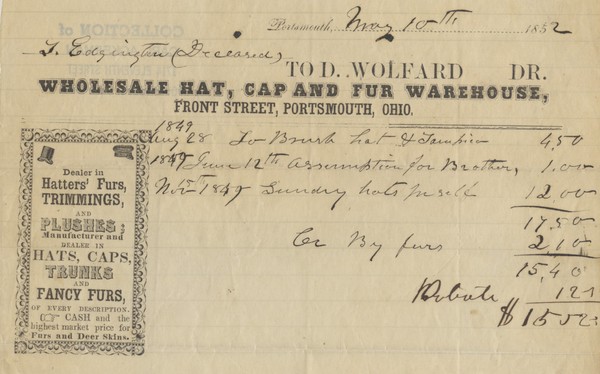 Portsmouth, May 10th 1852
T. Edgington (Deceased)
TO D. WOLFARD DR.
WHOLESALE HAT, CAP AND FUR WAREHOUSE,
FRONT STREET, PORTSMOUTH, OHIO.
1849
Aug 28 To Brush hat & 4,50
1849 June 12th Assumption for Brother, 1.00
Novr 1849 Sundry hats pr self 12,00
17,50
Cr By furs 2,10
15,40
Probate 12
$15,52
Dealer in
Hatters' Furs,
TRIMMINGS,
AND
PLUSHES;
Manufacturer and
DEALER IN
HATS, CAPS,
TRUNKS
AND
FANCY FURS,
OF EVERY DESCRIPTION.
☞ CASH and the
highest market price for
Furs and Deer Skins.